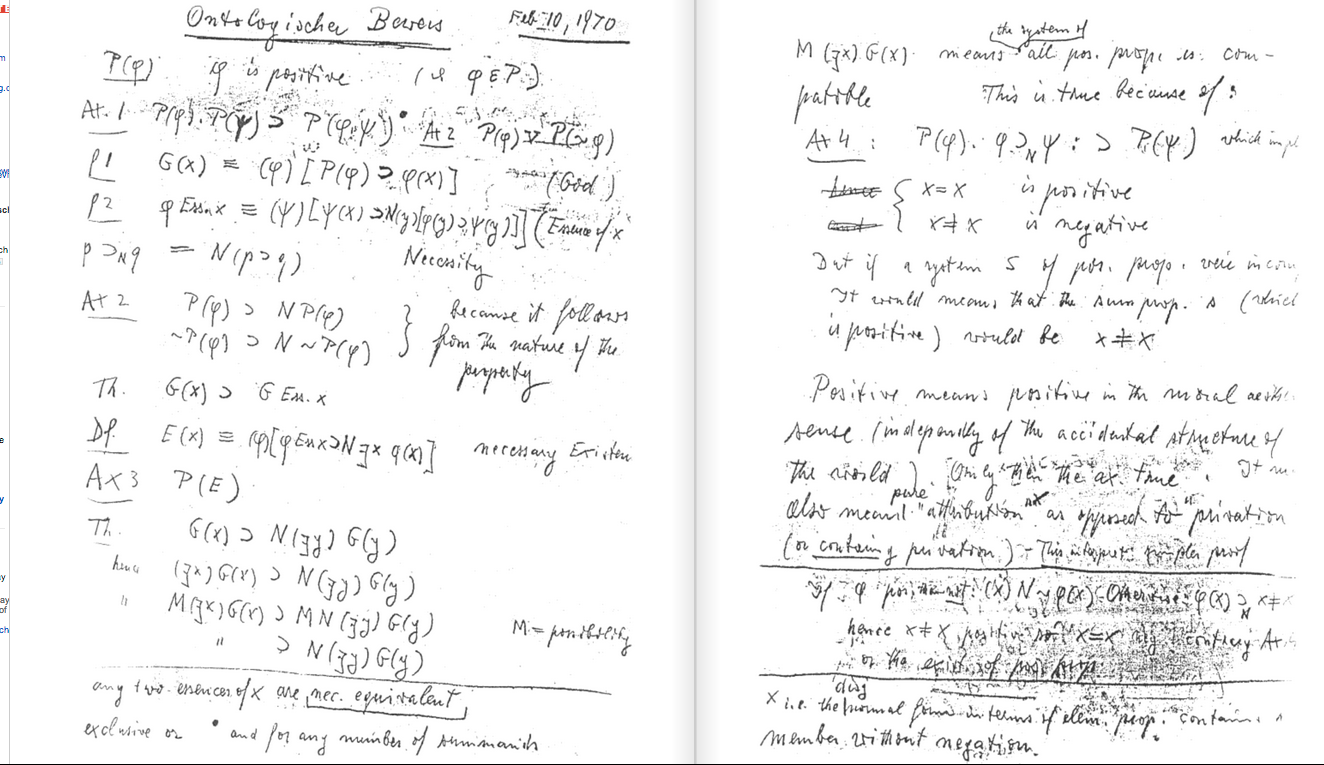 Ontologischer Beweis Feb 10, 1970
P(φ) φ is positive (or φ ε P.)
At. 1 P(φ). P(ψ) ⊃ P(φ.ψ) At 2 P(φ) ∨ P(~φ)
P1 G(x) ≡ (φ)[P(φ) ⊃ φ(x)] (God)
P2 φ Ess. x ≡ (ψ)[ψ(x) ⊃ N(y)[φ(y) ⊃ ψ(y)]] (Essence of x
p ⊃N q = N(p ⊃ q) Necessity
At 2 P(φ) ⊃ N P(φ) } because it follows
~P(φ) ⊃ N ~P(φ) from the nature of the
property
Th. G(x) ⊃ G Ess. x
Df. E(x) ≡ (φ)[φ Ess x ⊃ N ∃x φ(x)] necessary Existen
Ax 3 P(E)
Th. G(x) ⊃ N(∃y) G(y)
hence (∃x) G(x) ⊃ N(∃y) G(y)
" M(∃x) G(x) ⊃ M N (∃y) G(y) M = possibility
" ⊃ N(∃y) G(y)
any two essences of x are nec. equivalent
exclusive or * and for any number of summands
the system of
M (∃x) G(x) means all pos. prop. is com-
patible This is true because of :
At 4 : P(φ). φ ⊃N ψ : ⊃ P(ψ) which impl
hence { x = x is positive
and x ≠ x is negative
But if a system S of pos. prop. were incom
It would means that the sum prop. s (which
is positive) would be x ≠ x
Positive means positive in the moral aesthe
sense (independly of the accidental structure of
the world). Only then the ax. true. It m
pure
also means "attribution" as opposed to "privation
(or containing privation.) - This interpret. simpler proof
If φ pos. : (x) N ~φ(x). Otherwise: φ(x) ⊃N x ≠
hence x ≠ x positive so x = x neg contrary At
or the exist. of pos. prop.
disj
x i.e. the normal form in terms of elem. prop. contains a
member without negation.